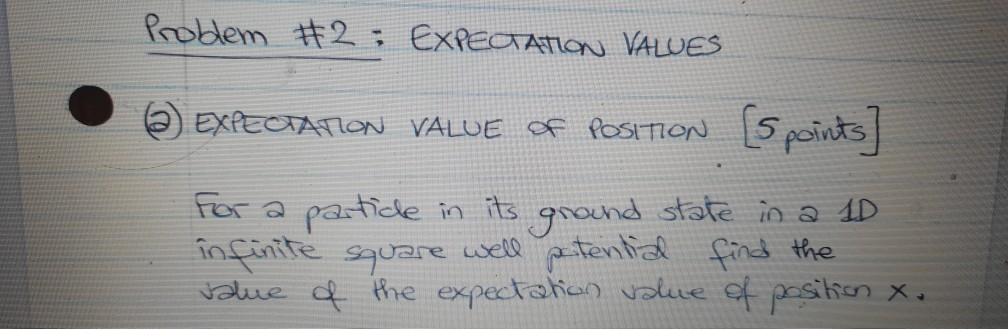 Problem #2: EXPECTATION VALUES
(a) EXPECTATION VALUE OF POSITION [5 points]
For a particle in its ground state in a 1D
infinite square well potential find the
value of the expectation value of position x.